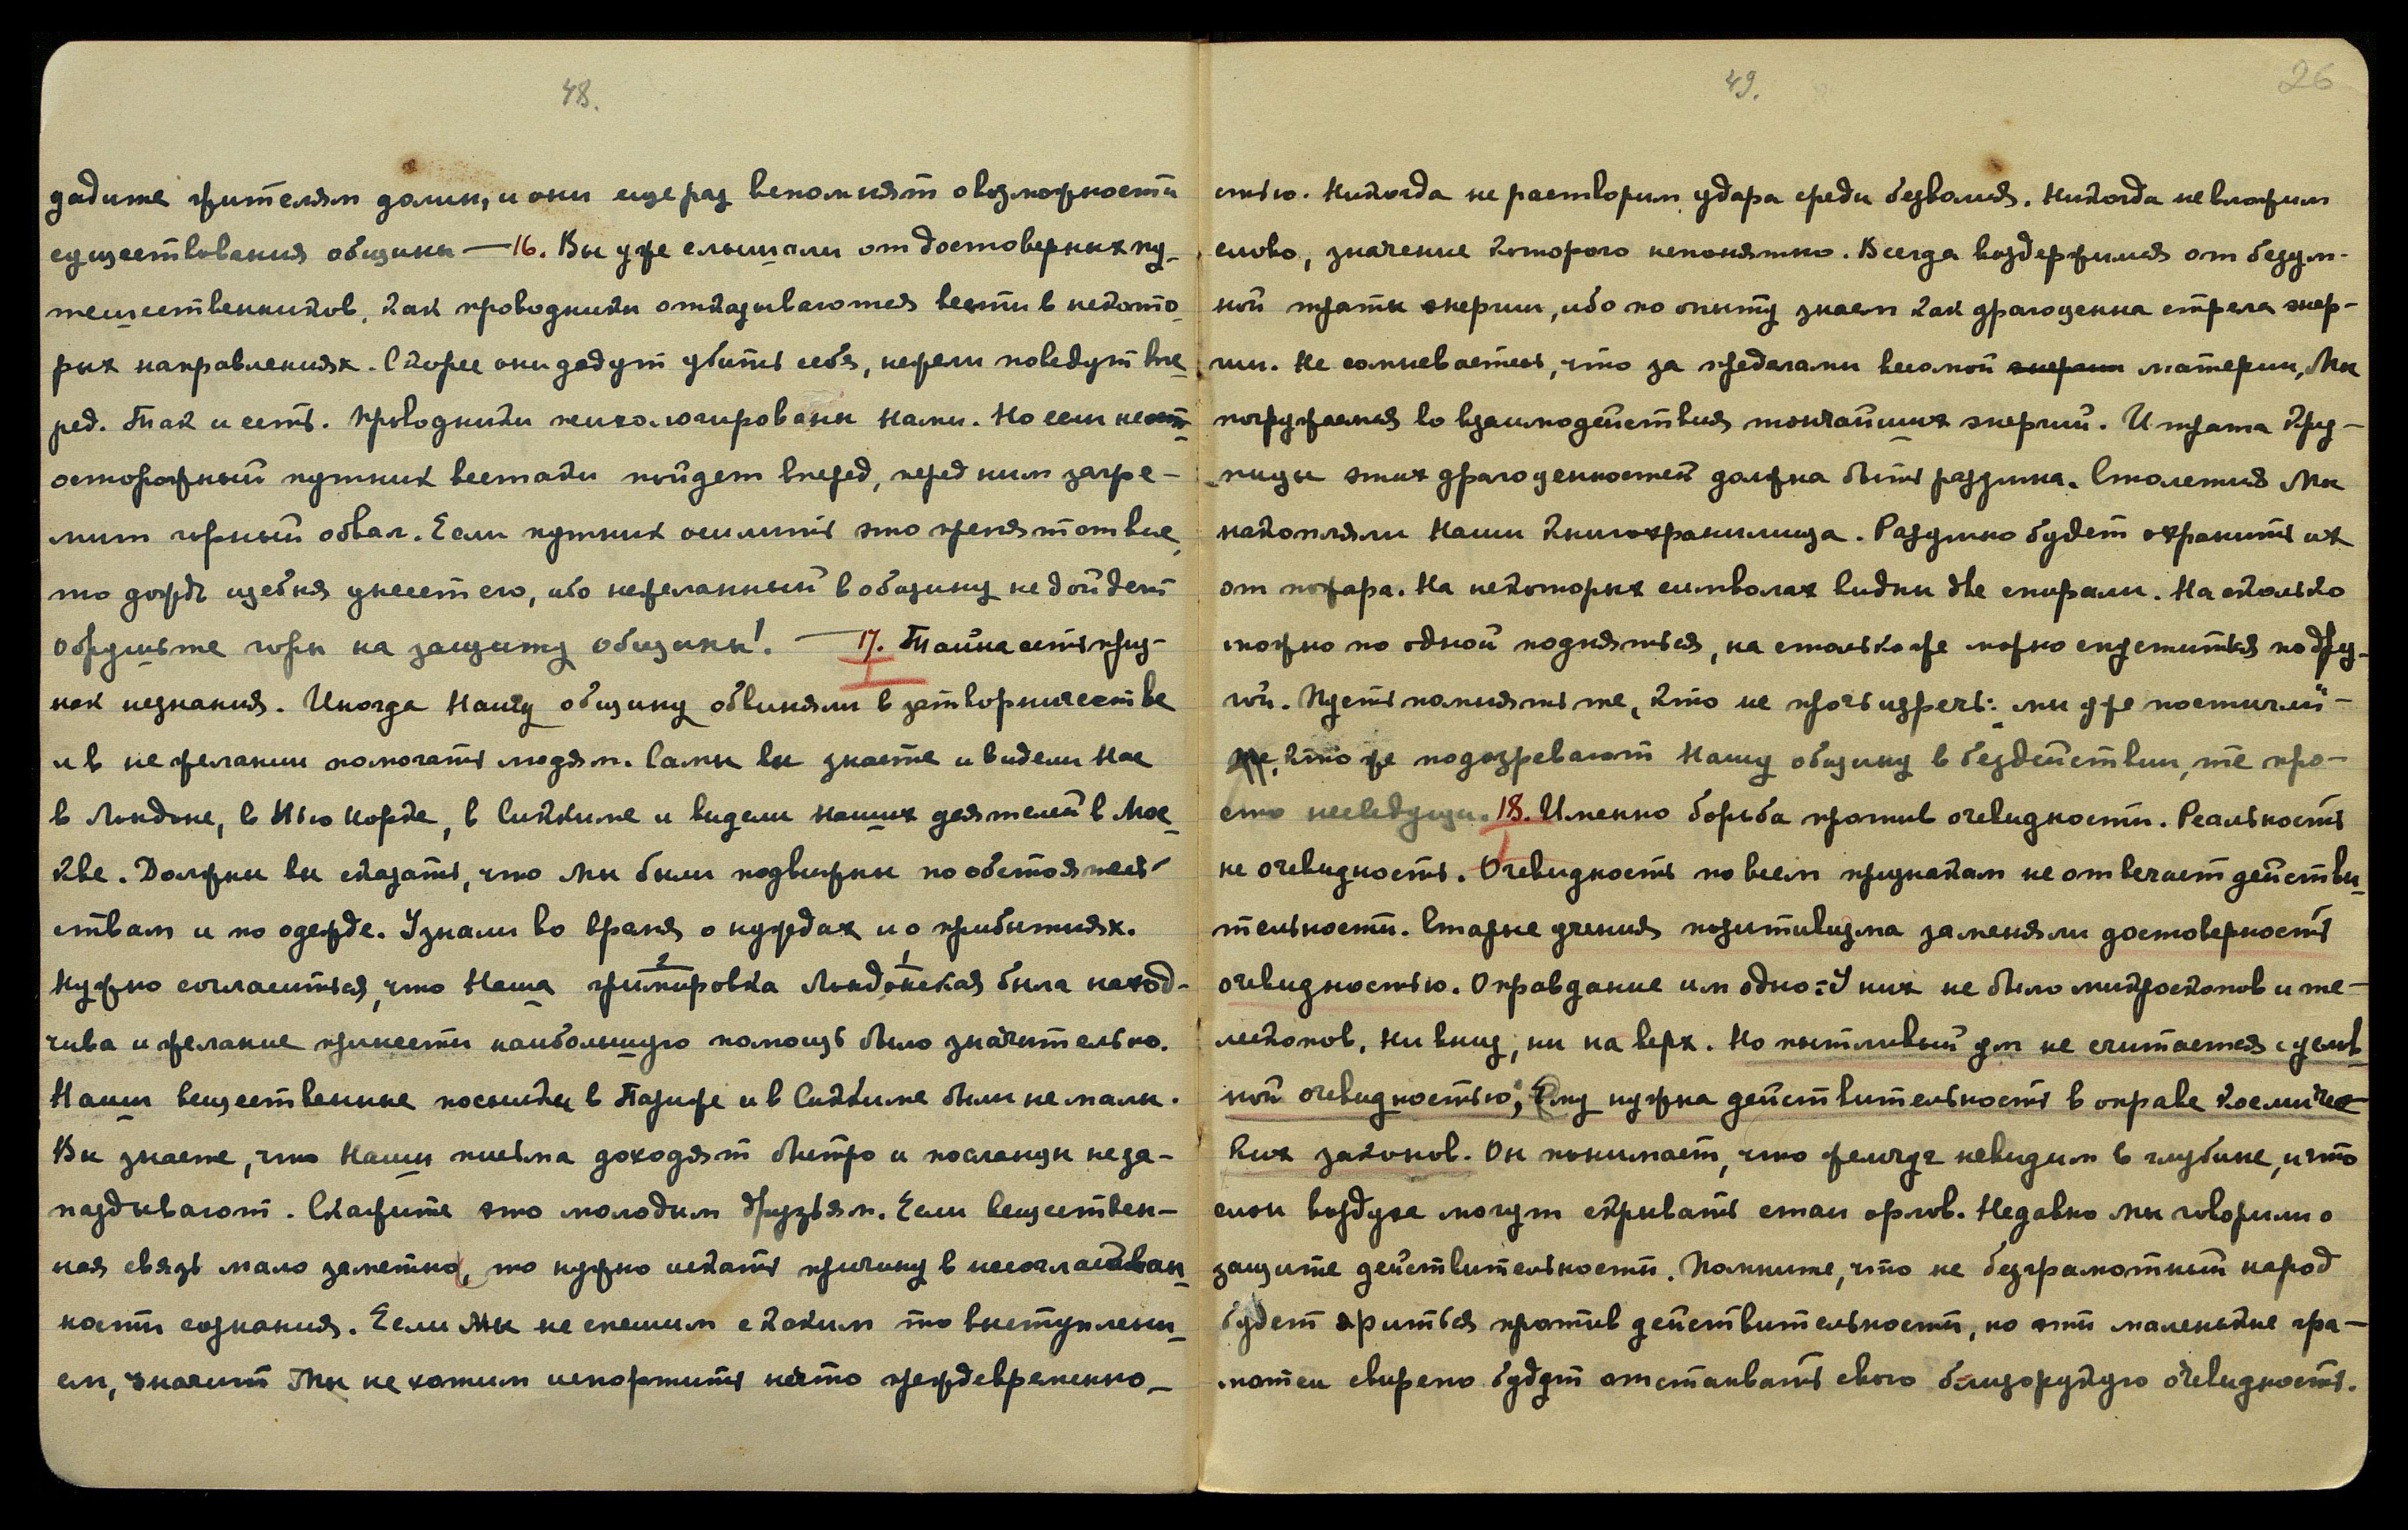 48.
дадите жителям долин, и они еще раз вспомнят о возможности
существования общины — 16. Вы уже слышали от достоверных пу-
тешественников, как проводники отказываются вести в некото-
рых направлениях. Скорее они дадут убить себя, нежели поведут впе-
ред. Так и есть. Проводники психологированы Нами. Но если не
осторожный путник всетаки пойдет вперед, перед ним загре-
мит горный обвал. Если путник осилить это препятствие,
то дождь щебня унесет его, ибо нежеланный в общину не дойдет
Обрушьте горы на защиту общины! — 17. Тайна есть приз-
нак незнания. Иногда Нашу общину обвиняли в затворничестве
и в нежелании помогать людям. Сами вы знаете и видели Нас
в Лондоне, в Нью Иорке, в Сиккиме и видели Наших деятелей в Мос-
кве. Должны вы сказать, что Мы были подвижны по обстоятель-
ствам и по одежде. Узнали во время о нуждах и о прибытиях.
Нужно согласиться, что Наша 2 гримировка 1 Лондонская была наход-
чива и желание принести наибольшую помощь было значительно.
Наши вещественные посылки в Париже и в Сиккиме были не малы.
Вы знаете, что Наши письма доходят быстро и посланцы не за-
паздывают. Скажите это молодым друзьям. Если веществен-
ная связь мало заметна, то нужно искать причину в несогласован-
ности сознания. Если Мы не спешим с каким то выступлени-
ем, значит Мы не хотим испортить нечто преждевременно-
49.
26
стью. Никогда не растворим удара среди безволия. Никогда не вложим
слово, значение которого непонятно. Всегда воздержимся от безум-
ной траты энергии, ибо по опыту знаем как драгоценна стрела энер-
гии. Не сомневаетесь, что за пределами весомой энергии материи, Мы
погружаемся во взаимодействия тончайших энергий. И трата кру-
пицы этих драгоценностей должна быть разумна. Столетия Мы
накопляли Наши книгохранилища. Разумно будет охранить их
от пожара. На некоторых символах видны две спирали. Насколько
можно по одной подняться, на столько же можно спуститься по дру-
гой. Пусть помнят те, кто не прочь изречь: „мы уже постигли“ —
Те, кто же подозревают Нашу общину в бездействии, те про-
сто несведущи. 18. Именно борьба против очевидности. Реальность
не очевидность. Очевидность по всем признакам не отвечает действи-
тельности. Старые учения позитивизма заменяли достоверность
очевидностью. Оправдание им одно: У них не было микроскопов и те-
лескопов, ни вниз, ни на верх. Но пытливый ум не считается с услов-
ной очевидностью; Ему нужна действительность в оправе космичес-
ких законов. Он понимает, что жемчуг невидим в глубине, и что
слои воздуха могут скрывать стаи орлов. Недавно Мы говорили о
защите действительности. Помните, что не безграмотный народ
будет яриться против действительности, но эти маленькие гра-
мотеи свирепо будут отстаивать свою близорукую очевидность.